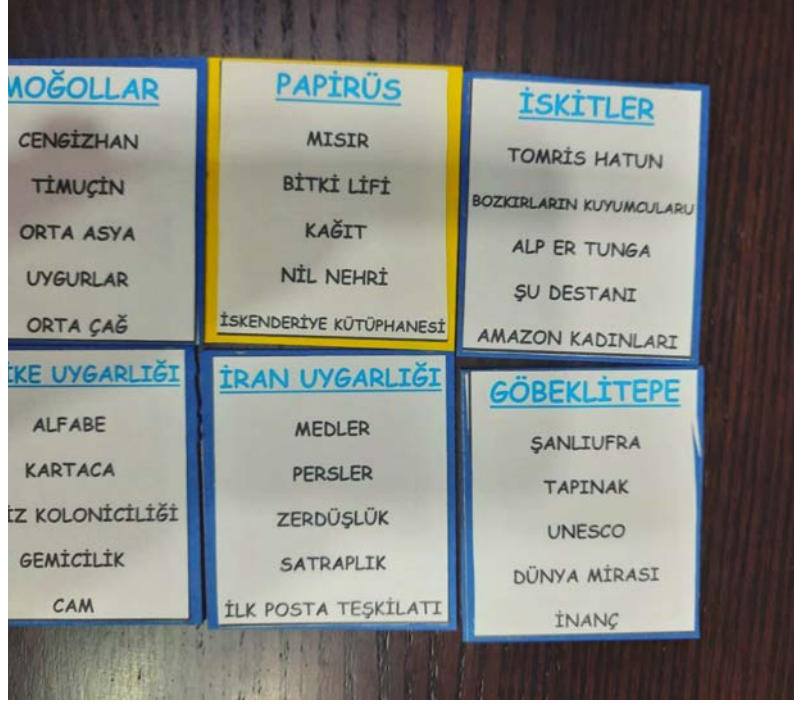 MOĞOLLAR
CENGİZHAN
TİMUÇİN
ORTA ASYA
UYGURLAR
ORTA ÇAĞ
PAPİRÜS
MISIR
BİTKİ LİFİ
KAĞIT
NİL NEHRİ
İSKENDERİYE KÜTÜPHANESİ
İSKİTLER
TOMRİS HATUN
BOZKIRLARIN KUYUMCULARU
ALP ER TUNGA
ŞU DESTANI
AMAZON KADINLARI
UYGARLIĞI
ALFABE
KARTACA
KOLONİCİLİĞİ
GEMİCİLİK
CAM
İRAN UYGARLIĞI
MEDLER
PERSLER
ZERDÜŞLÜK
SATRAPLIK
İLK POSTA TEŞKİLATI
GÖBEKLİTEPE
ŞANLIUFRA
TAPINAK
UNESCO
DÜNYA MİRASI
İNANÇ